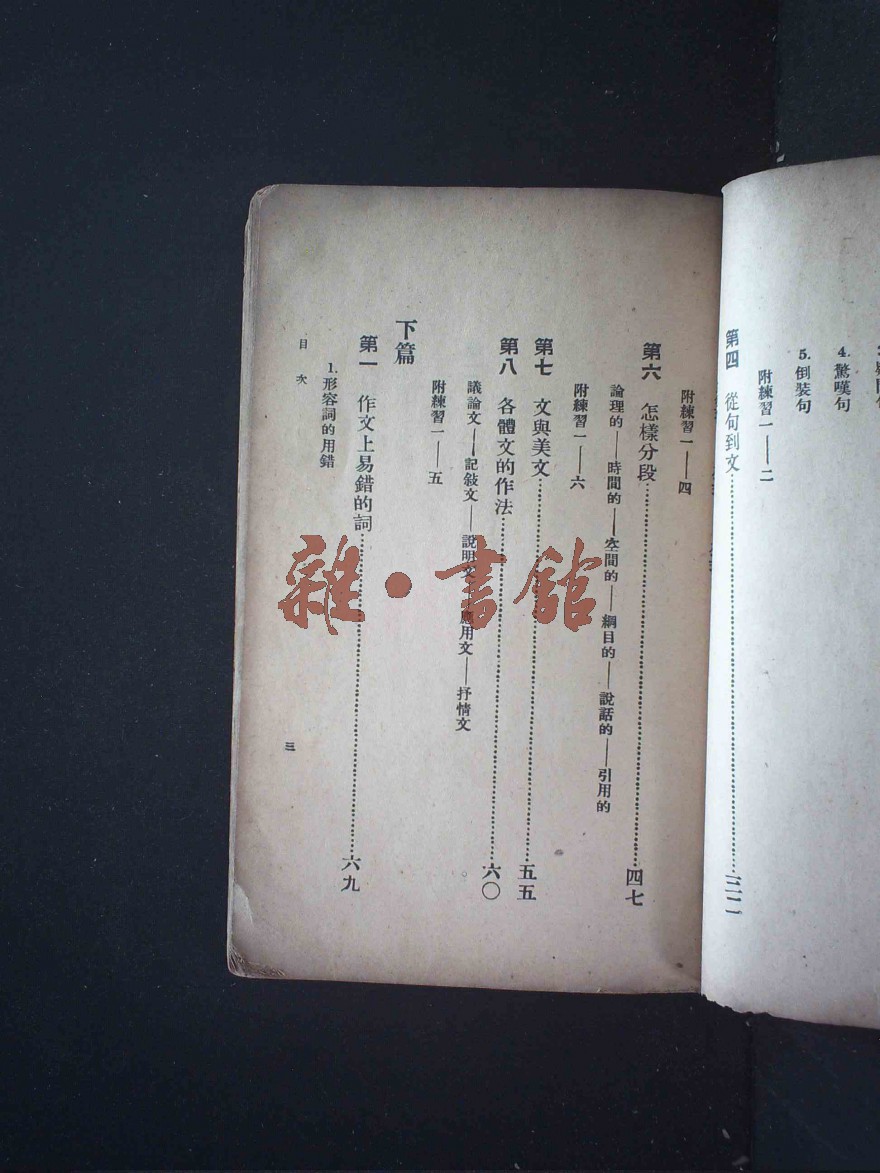 4. 驚嘆句
5. 倒裝句
附練習一——二
第四 從句到文……三二
附練習一——四
第六 怎樣分段……四七
論理的——時間的——空間的——綱目的——說話的——引用的
附練習一——六
第七 文與美文……五五
第八 各體文的作法……六〇
議論文——記敍文——說明文——應用文——抒情文
附練習一——五
下篇
第一 作文上易錯的詞……六九
1. 形容詞的用錯
目次
三
雜·書館